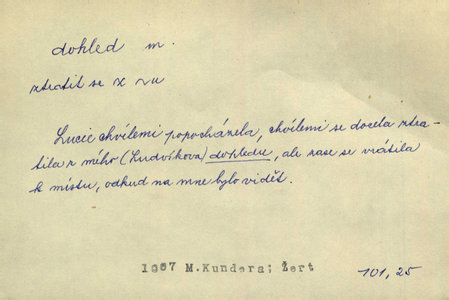 dohled m.
ztratit se z ~u
Lucie chvílemi popocházela, chvílemi se docela ztra-
tila z mého (Ludvíkova) dohledu, ale zase se vrátila
k místu, odkud na mne bylo vidět.
1967 M.Kundera; Žert
101, 25